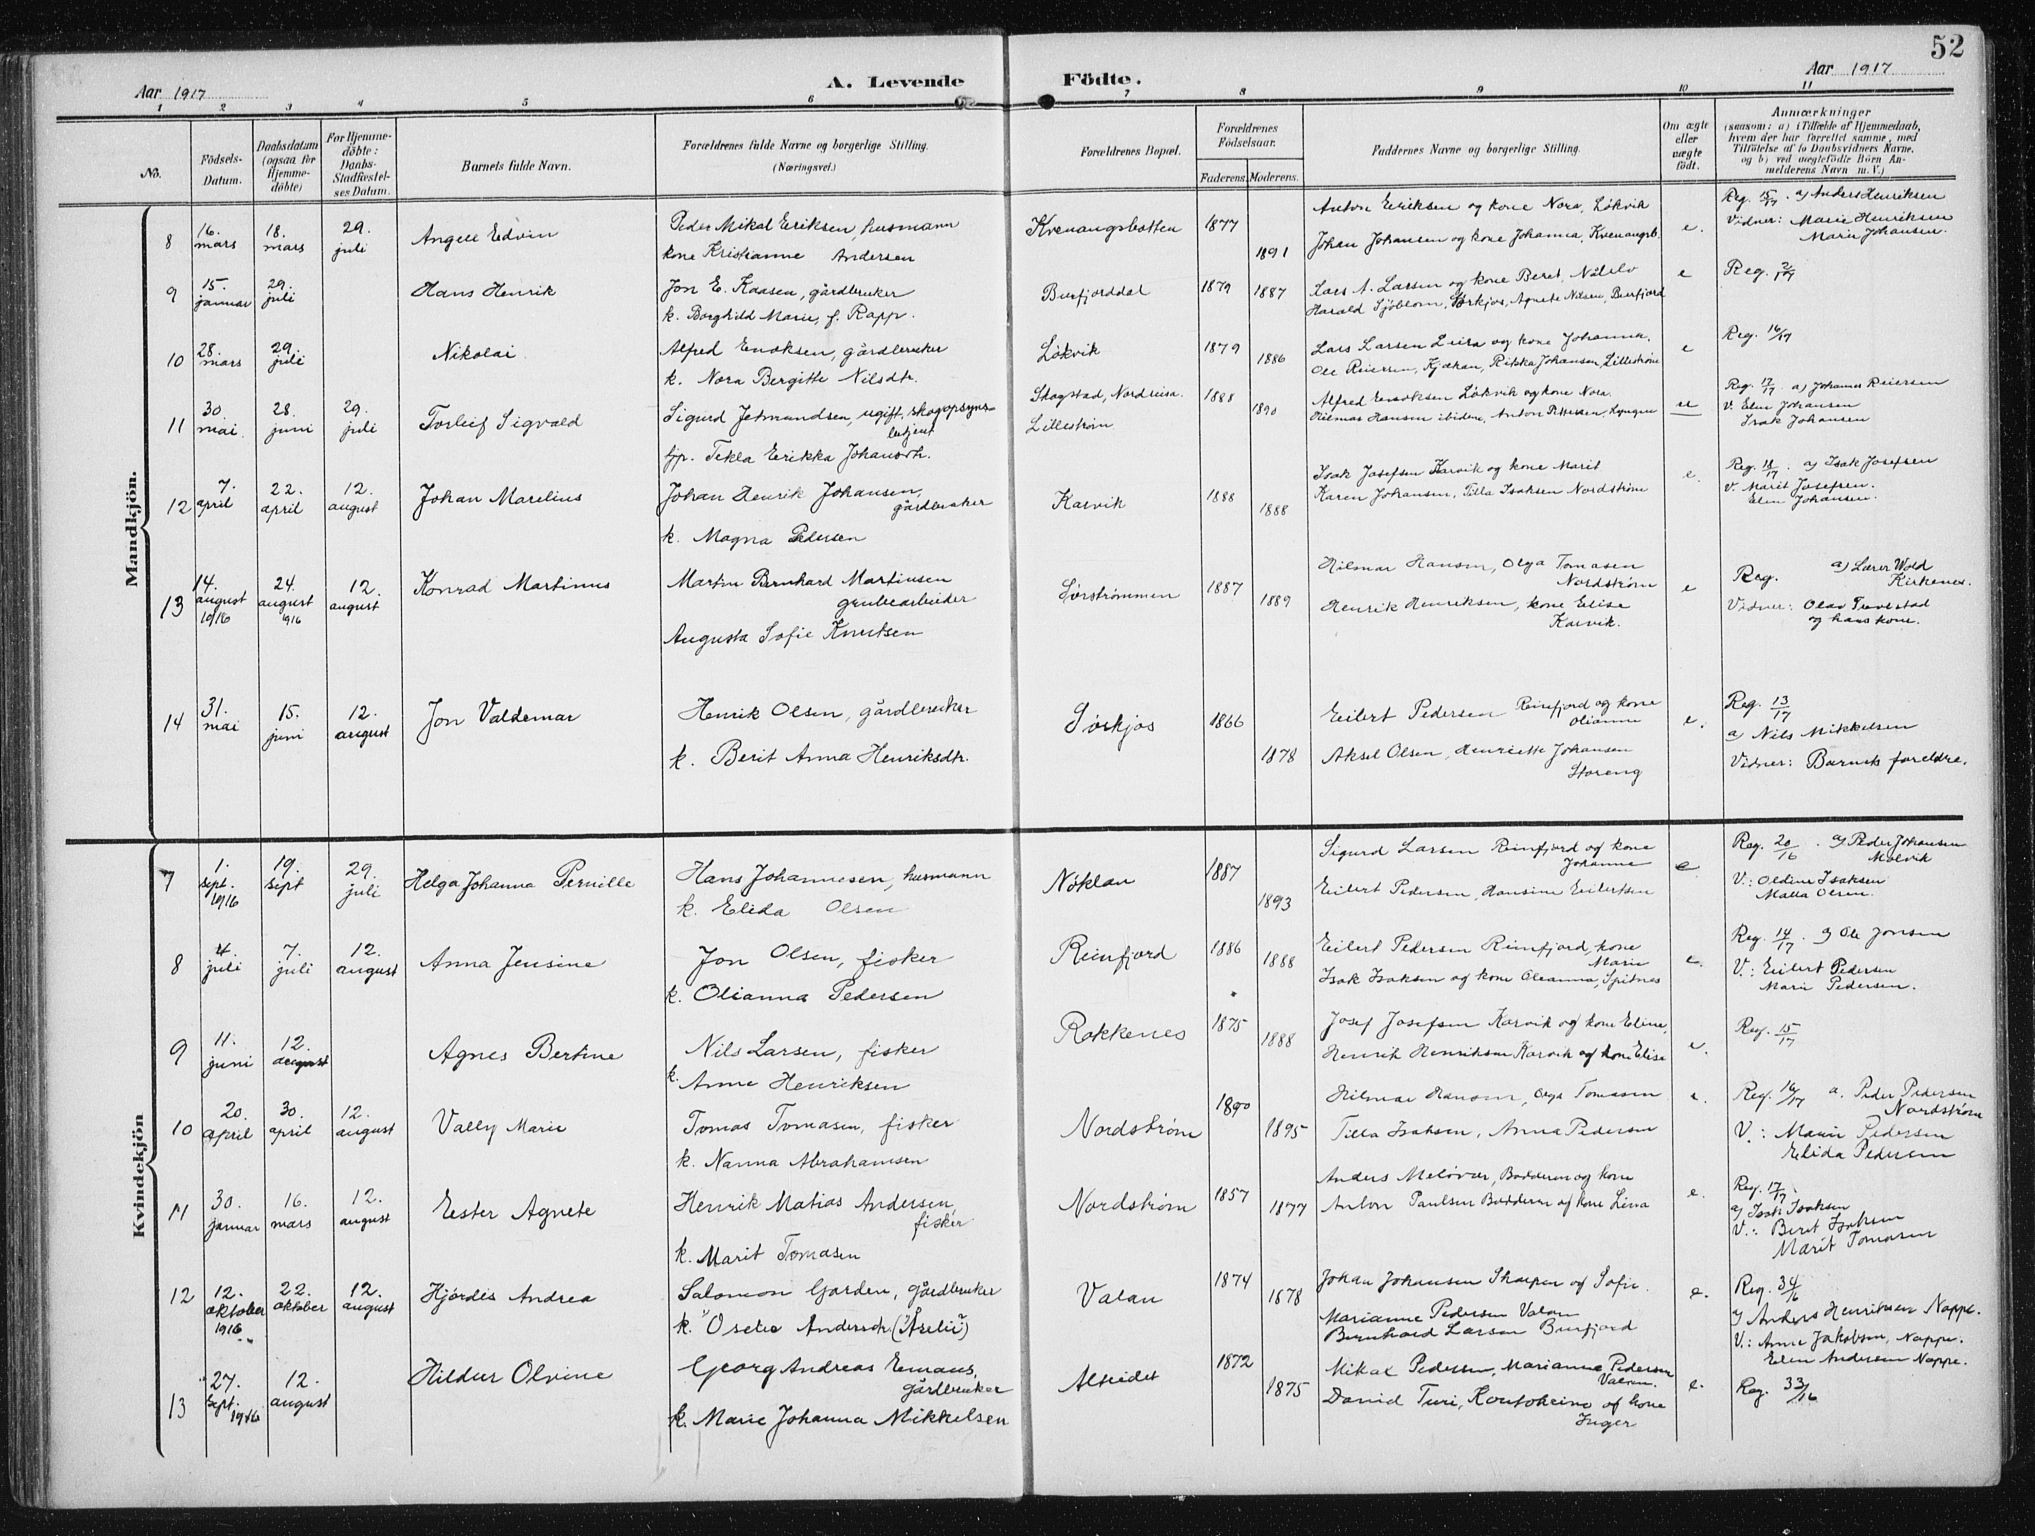 52
Aar 1917
A. Levende Födte.
Aar 1917
1 2 3 4 5 6 7 8 9 10 11
No.
Födsels-Datum.
Daabsdatum (ogsaa for Hjemmedöbte)
For Hjemmedöbte: Daabs-Stadfæstelses Datum.
Barnets fulde Navn.
Forældrenes fulde Navne og borgerlige Stilling.
(Næringsvei.)
Forældrenes Bopæl.
Forældrenes Födselsaar.
Faderens. Moderens.
Faddernes Navne og borgerlige Stilling.
Om ægte eller uægte født.
Anmærkninger
(saasom: a) i Tilfælde af Hjemmedaab,
hvem der har forrettet samme, med
Tilföielse af to Daabsvidners Navne,
og b) ved uægtefödte Börn An-
melderens Navn m. V.)
Mandkjön.
8 16. mars 18. mars 29. juli Angell Edvin
Peder Mikal Eriksen, husmann
kone Kristianne Andersen
Kvenangsbotten 1877 1891
Anton Eriksen og kone Nora, Løkvik
Johan Johansen og kone Johanna, Kvenangsb.
e.
Reg. 15/17. a) Anders Henriksen
Vidner: Marie Henriksen
Marie Johansen.
9 15. januar 29. juli Hans Henrik
Jon E. Kaasen, gårdbruker
k. Borghild Marie, f. Rapp.
Burfjorddal 1879 1887
Lars A. Larsen og kone Beret, Nilelv
Harald Sjöblom, Sørkjos, Agnete Nilsen, Burfjord
e
Reg. 2/17
10 28. mars 29. juli Nikolai
Alfred Enoksen, gårdbruker
k. Nora Bergitte Nilsdtr.
Løkvik 1879 1886
Lars Larsen Leira og kone Johanna.
Ole Reiersen, Kjækan, Rikka Johansen, Lillestrøm
e
Reg. 16/17
11 30. mai. 28. juni 29. juli Torleif Sigvald
Sigurd Jetmundsen, ugift, skogopsyns-
betjent
fjp. Tekla Erikka Johansdtr.
Skogstad, Nordreisa.
Lillestrøm
1888 1890
Alfred Enoksen Løkvik og kone Nora.
Hilmar Hansen ibidem, Anton Pettersen, Lyngen
ue
Reg. 17/17 a) Johannes Reiersen
V. Elen Johansen
Isak Johansen
12 7. april 22. april 12. august Johan Marelius
Johan Henrik Johansen,
gårdbruker
k. Magna Pedersen
Karvik 1888 1888
Isak Josefsen Karvik og kone Marit
Karen Johansen, Tilla Isaksen Nordstrøm
e.
Reg. 18/17 a) Isak Josefsen
V. Marit Josefsen.
Elen Johansen.
13 14. august 1916 24. august 1916 12. august Konrad Martinus
Martin Bernhard Martinsen
grubearbeider
Augusta Sofie Knutsen
Sørstrømmen 1887 1889
Hilmar Hansen, Olga Tomasen
Nordstrøm
Henrik Henriksen, kone Elise
Karvik.
e
Reg. a) Lærer Wold
Kirkenes.
Vidner: Olav Tvevestad
og hans kone.
14 31. mai 15. juni 12. august Jon Valdemar
Henrik Olsen, gårdbruker
k. Berit Anna Henriksdtr.
Sørkjos 1866 1878
Eilert Pedersen Reinfjord og kone
Olianna
Aksel Olsen, Henriette Johansen
Storeng
e.
Reg. 13/17
a) Nils Mikkelsen
Vidner: Barnets foreldre.
Kvindekjön
7 1. sept. 1916 19. sept 29. juli Helga Johanna Pernille
Hans Johannesen, husmann
k. Elida Olsen
Nøklan 1887 1893
Sigurd Larsen Reinfjord og kone
Johanne
Eilert Pedersen, Hansine Eilertsen
e
Reg. 20/16. a) Peder Johansen
Molvik
V.: Oldine Isaksen
Malla Olsen.
8 4. juli 7. juli 12. august Anna Jensine
Jon Olsen, fisker
k. Olianna Pedersen
Reinfjord 1886 1888
Eilert Pedersen Reinfjord, kone
Marie
Isak Isaksen og kone Oleanna, Spitnes
e.
Reg. 14/17. a) Ole Jonsen
V.: Eilert Pedersen
Marie Pedersen.
9 11. juni 12. august Agnes Bertine
Nils Larsen, fisker
k. Anne Henriksen
Rakkenes 1875 1888
Josef Josefsen Karvik og kone Eline,
Henrik Henriksen Karvik og kone Elise
e.
Reg. 15/17
10 20. april 30. april 12. august Vally Marie
Tomas Tomasen, fisker
k. Nanna Abrahamsen
Nordstrøm 1890 1895
Hilmar Hansen, Olga Tomasen
Tilla Isaksen, Anna Pedersen
e.
Reg. 16/17 a. Peder Pedersen
Nordstrøm
V.: Marie Pedersen
Elida Pedersen
11 30. januar 16. mars 12. august Ester Agnete
Henrik Matias Andersen,
fisker
k. Marit Tomasen
Nordstrøm 1857 1877
Anders Meløvær, Badderen og kone
Anton Paulsen Badderen og kone Lina
e.
Reg. 17/17
a) Isak Isaksen
V.: Beret Isaksen
Marit Tomasen
12 12. oktober 1916 22. oktober 12. august Hjördis Andrea
Salomon Garden, gårdbruker
k. "Oselie Andersdtr. ("Aselie")
Valan 1874 1878
Johan Johansen Skarpen og Sofie.
Marianne Pedersen Valan
Bernhard Larsen Burfjord
e.
Reg. 34/16
a) Anders Henriksen Nappe.
V.: Anne Jakobsen, Nappe.
Elen Andersen Nappe.
13 27. sept. 1916 12. august Hildur Olvine
Georg Andreas Emaus,
gårdbruker
k. Marie Johanna Mikkelsen
Alteidet 1872 1875
Mikal Pedersen, Marianne Pedersen
Valan.
David Turi, Koutokeino og kone
Inger
e.
Reg. 33/16